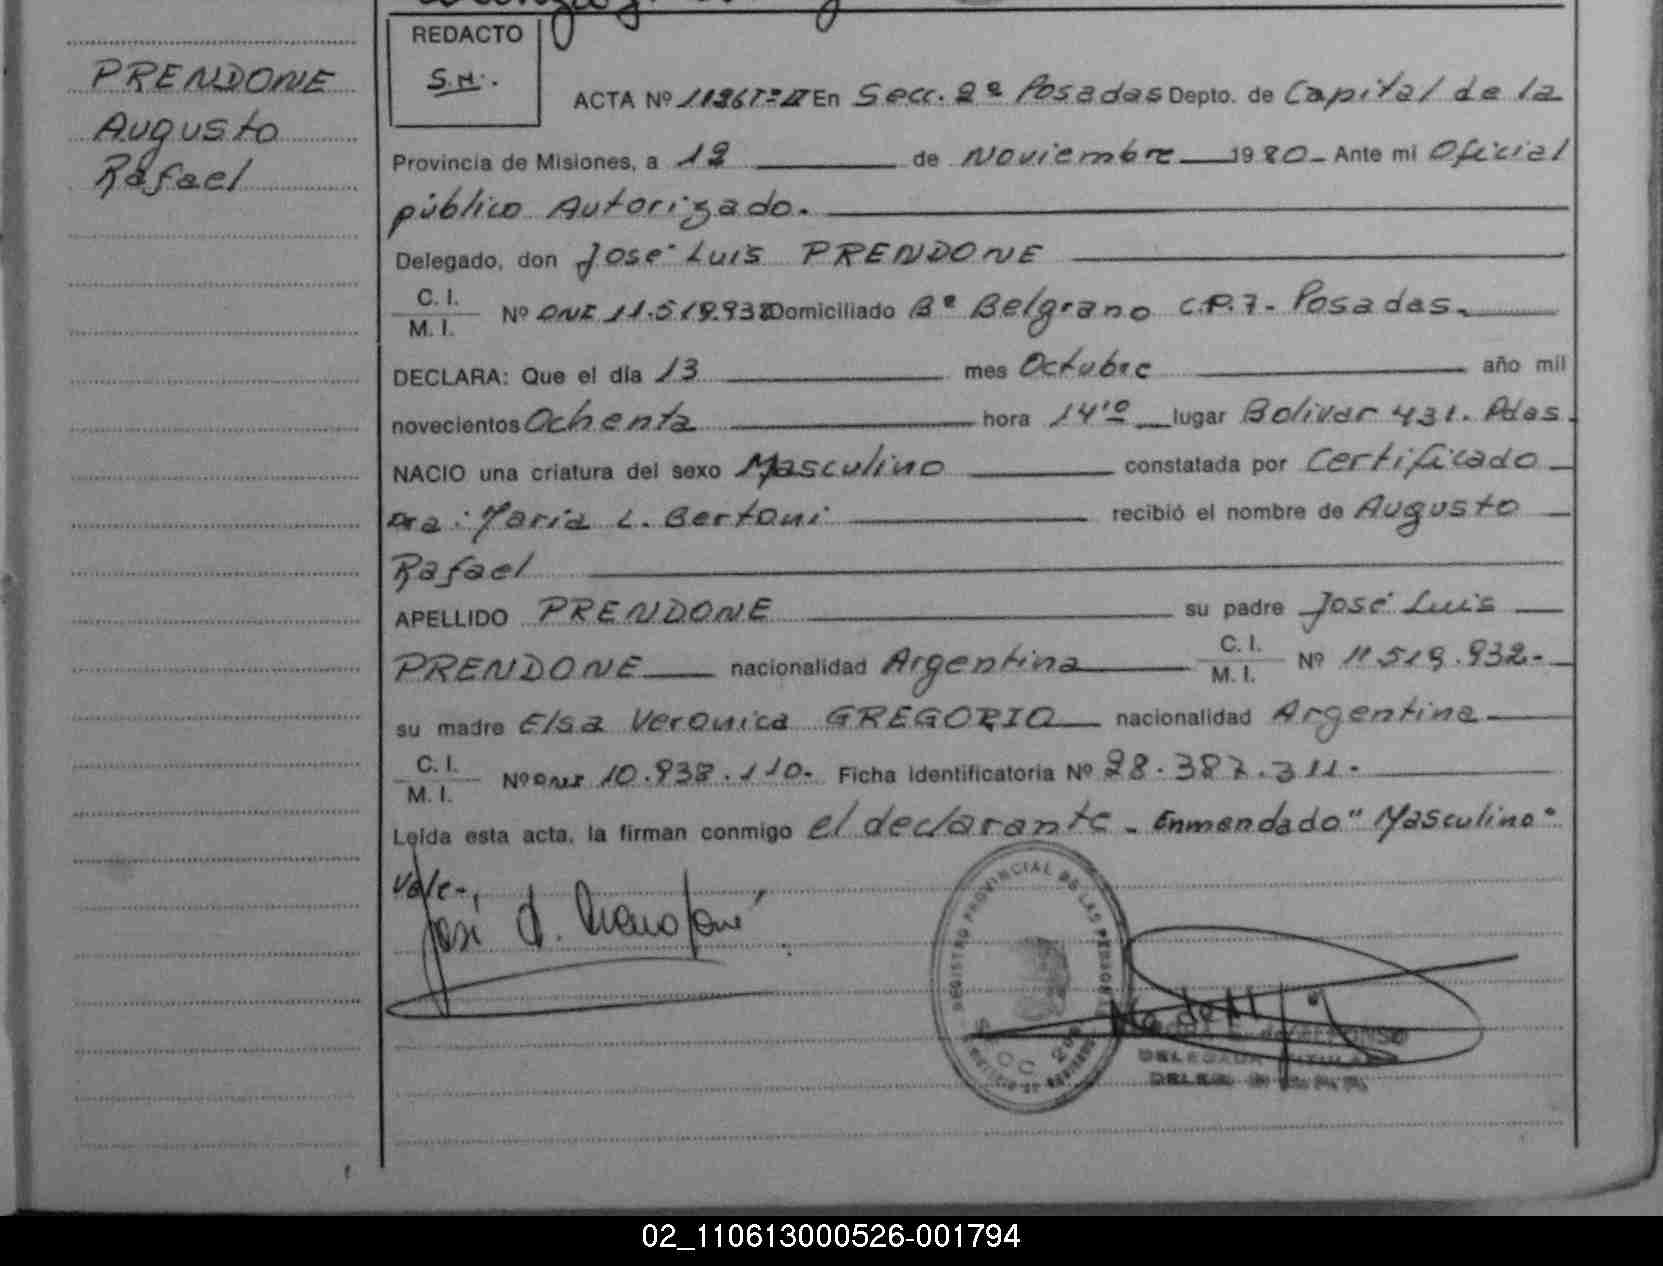 PRENDONE
Augusto
Rafael
REDACTO
S.M.
ACTA Nº En Secc. 2ª Posadas Depto. de Capital de la
Provincia de Misiones, a 12 de Noviembre 1980 - Ante mi Oficial
público Autorizado.
Delegado, don José Luis PRENDONE
C. I.
M. I. Nº DNI 11.519.932 Domiciliado Bº Belgrano C.P.7 - Posadas.
DECLARA: Que el día 13 mes Octubre año mil
novecientos Ochenta hora 14'º lugar Bolivar 431. Pdas.
NACIO una criatura del sexo Masculino constatada por Certificado
Dra. María L. Bertoni recibió el nombre de Augusto
Rafael
APELLIDO PRENDONE su padre José Luis
PRENDONE nacionalidad Argentina C. I. M. I. Nº 11.519.932.-
su madre Elsa Veronica GREGORIO nacionalidad Argentina
C. I.
M. I. Nº DNI 10.938.110. Ficha Identificatoria Nº 28.387.311.
Leída esta acta, la firman conmigo el declarante - Enmendado "Masculino"
Vale-,
José
REGISTRO PROVINCIAL DE LAS PERSONAS
SECC 2da
DELEGADA TITULAR
02_110613000526-001794